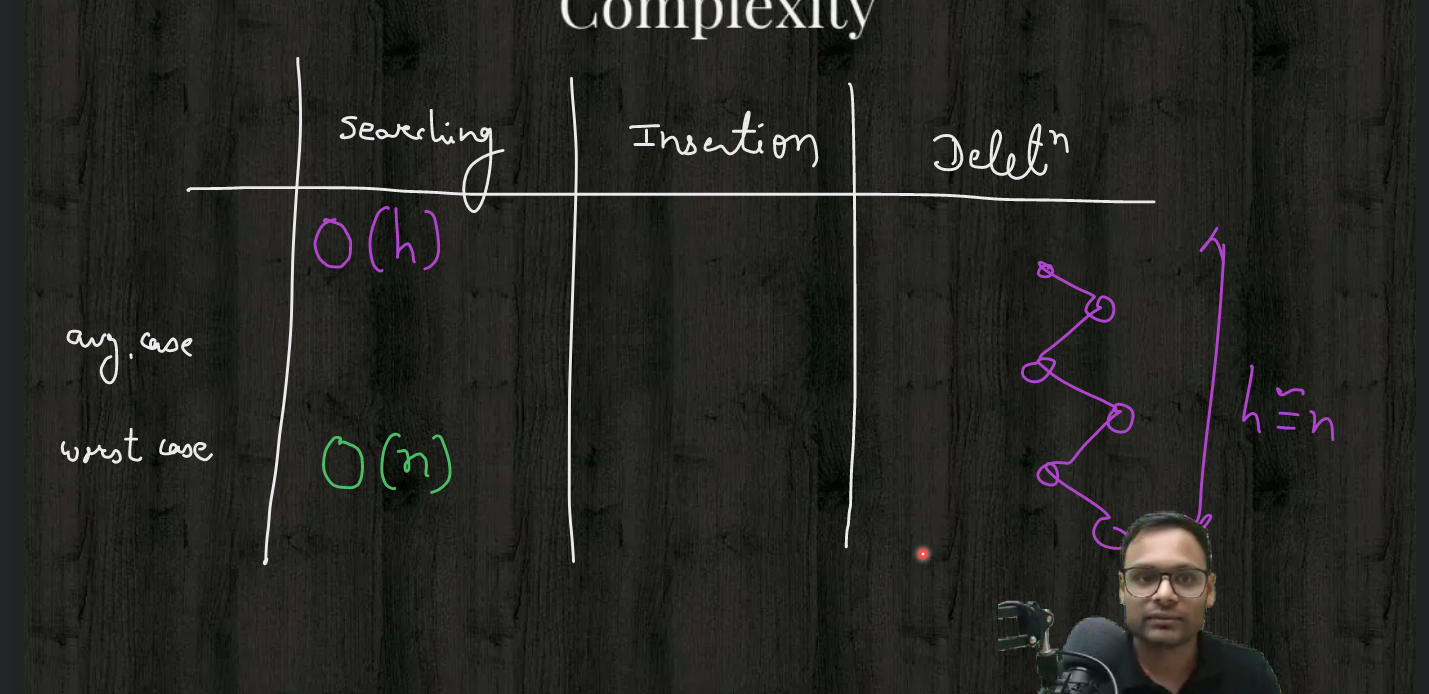 Complexity
Searching Insertion Deletⁿ
O(h)
avg. case
h ≅ n
worst case O(n)